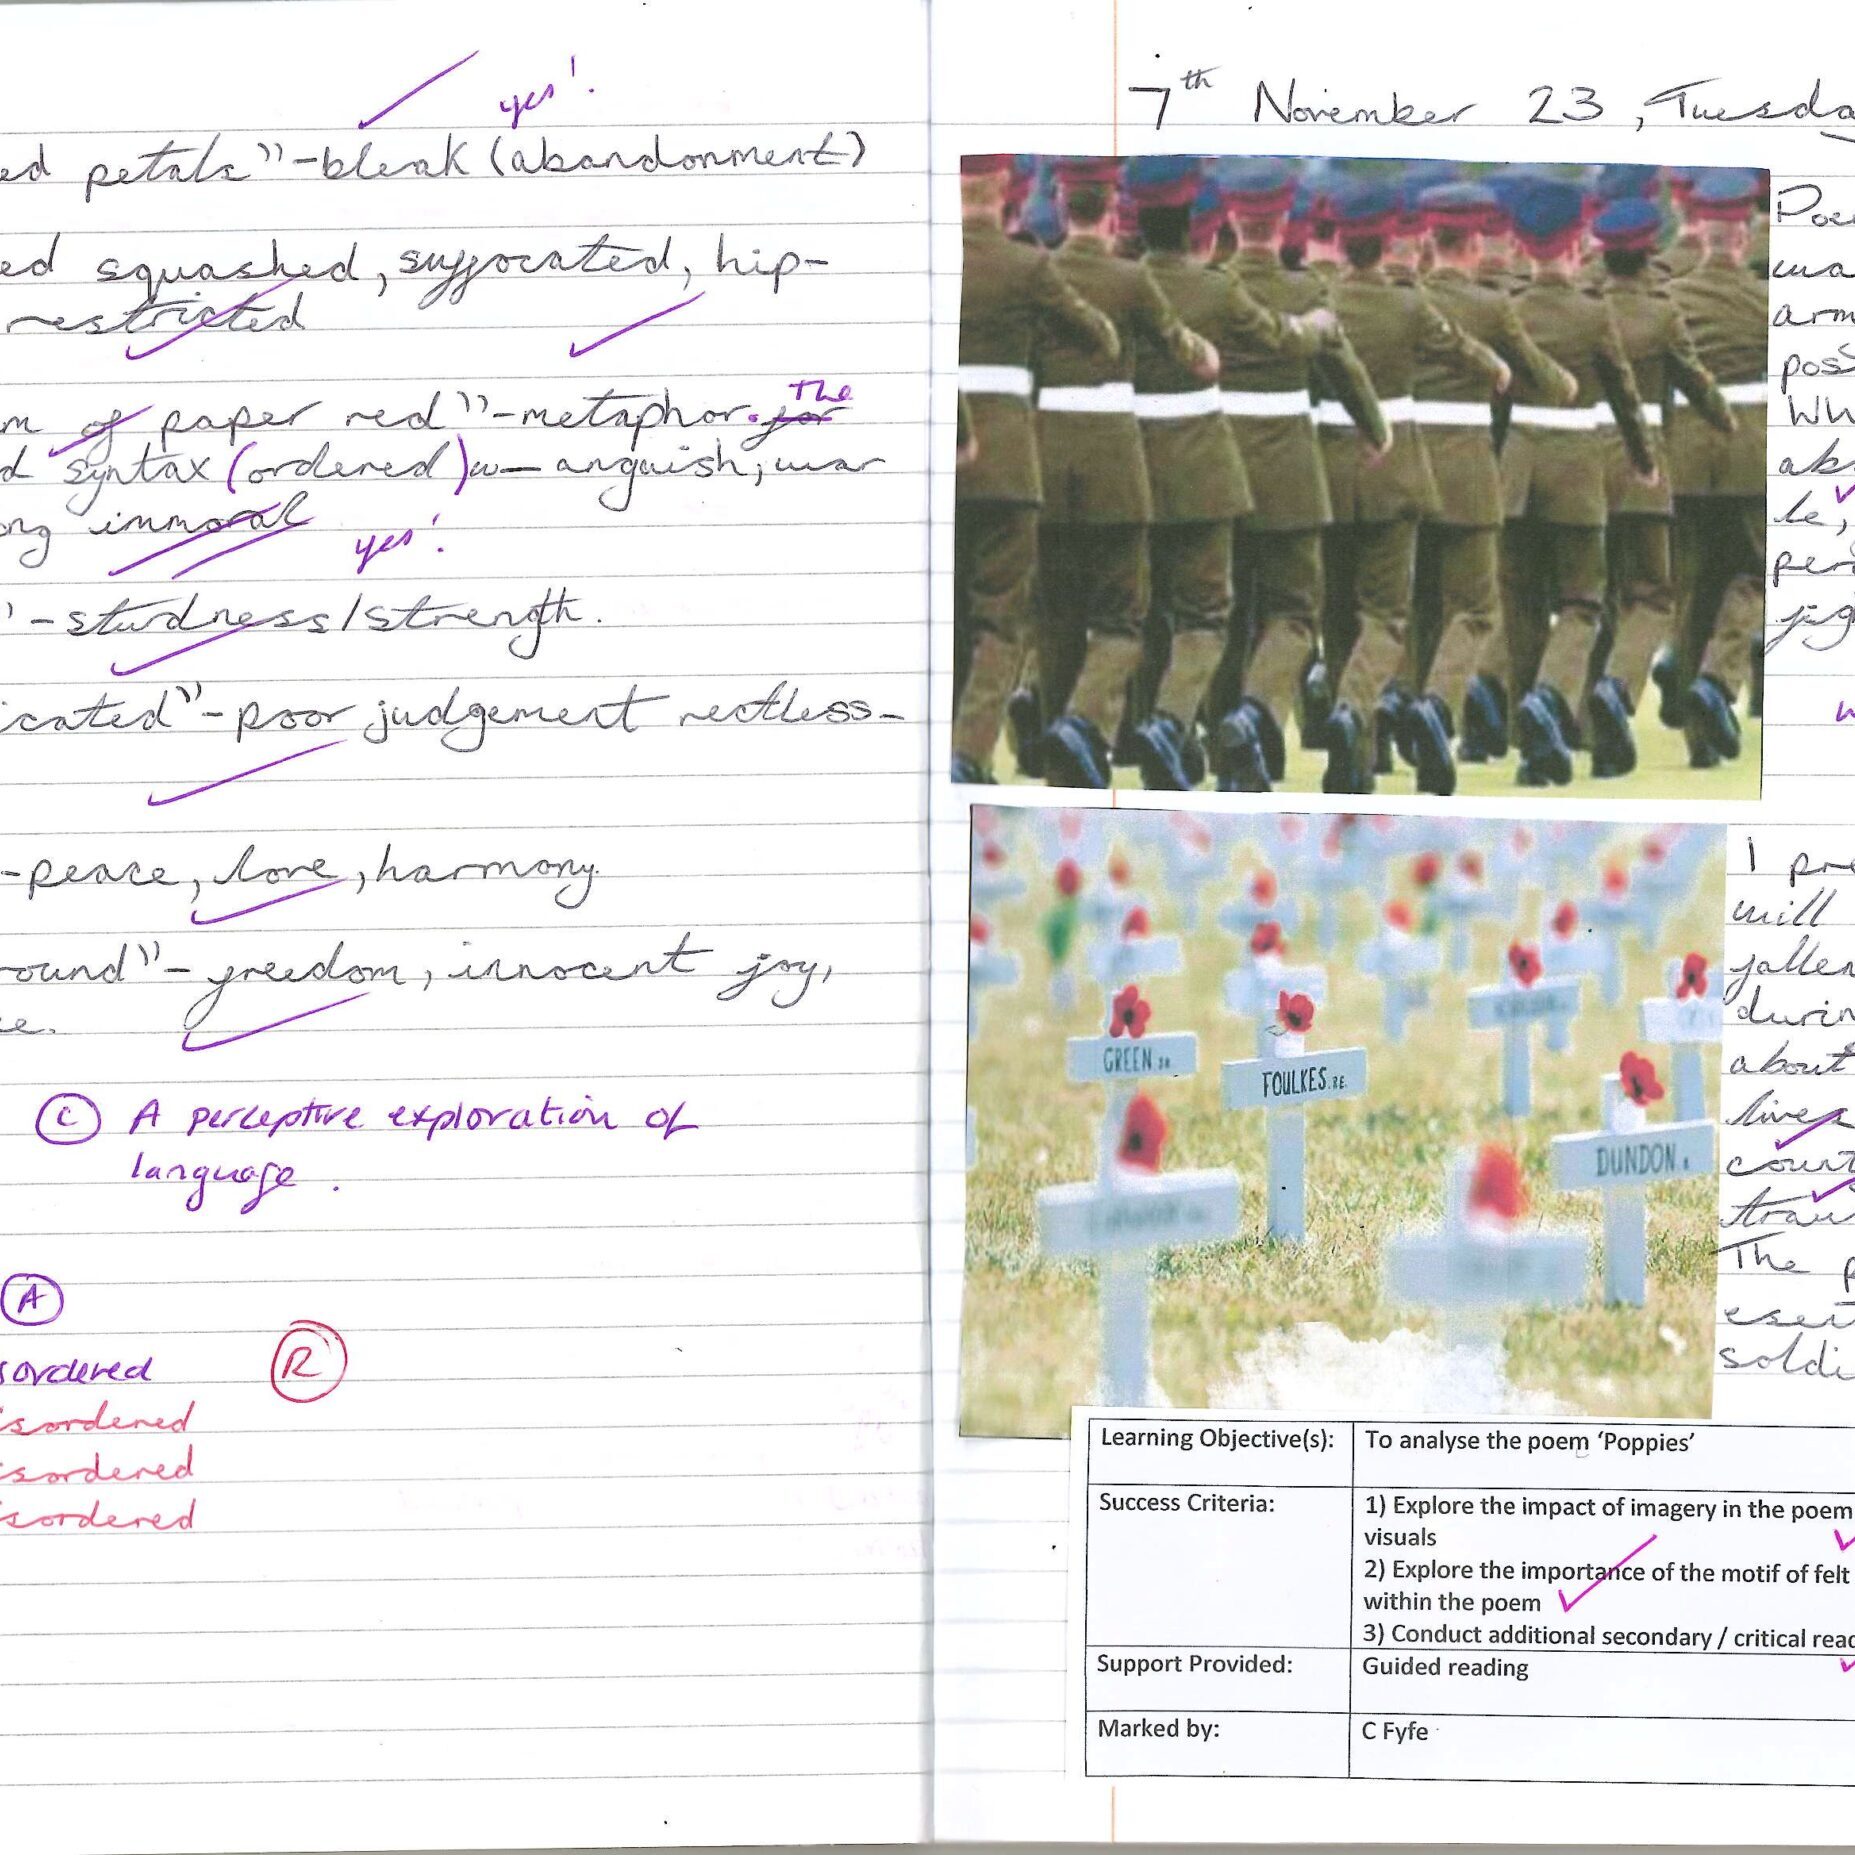 yes!
ed petals"-bleak (abandonment)
ed squashed, suffocated, hip-
restricted
The
m of paper red"-metaphor. for
d syntax (ordered) anguish, war
ong immoral
yes!
"-sturdness/strength.
icated"-poor judgement rectless-
-peace, love, harmony.
round"-freedom, innocent joy,
e.
C A perceptive exploration of
language.
A
sordered R
isordered
isordered
isordered
7th November 23, Tuesday
Poe
wa
arm
poss
Wh
abs
le,
per
jig
w
GREEN
FOULKES. R.E.
DUNDON.
I pre
will
fallen
durin
about
lives
count
trau
The p
eser
soldi
Learning Objective(s): To analyse the poem ‘Poppies’
Success Criteria: 1) Explore the impact of imagery in the poem
visuals
2) Explore the importance of the motif of felt
within the poem
3) Conduct additional secondary / critical read
Support Provided: Guided reading
Marked by: C Fyfe